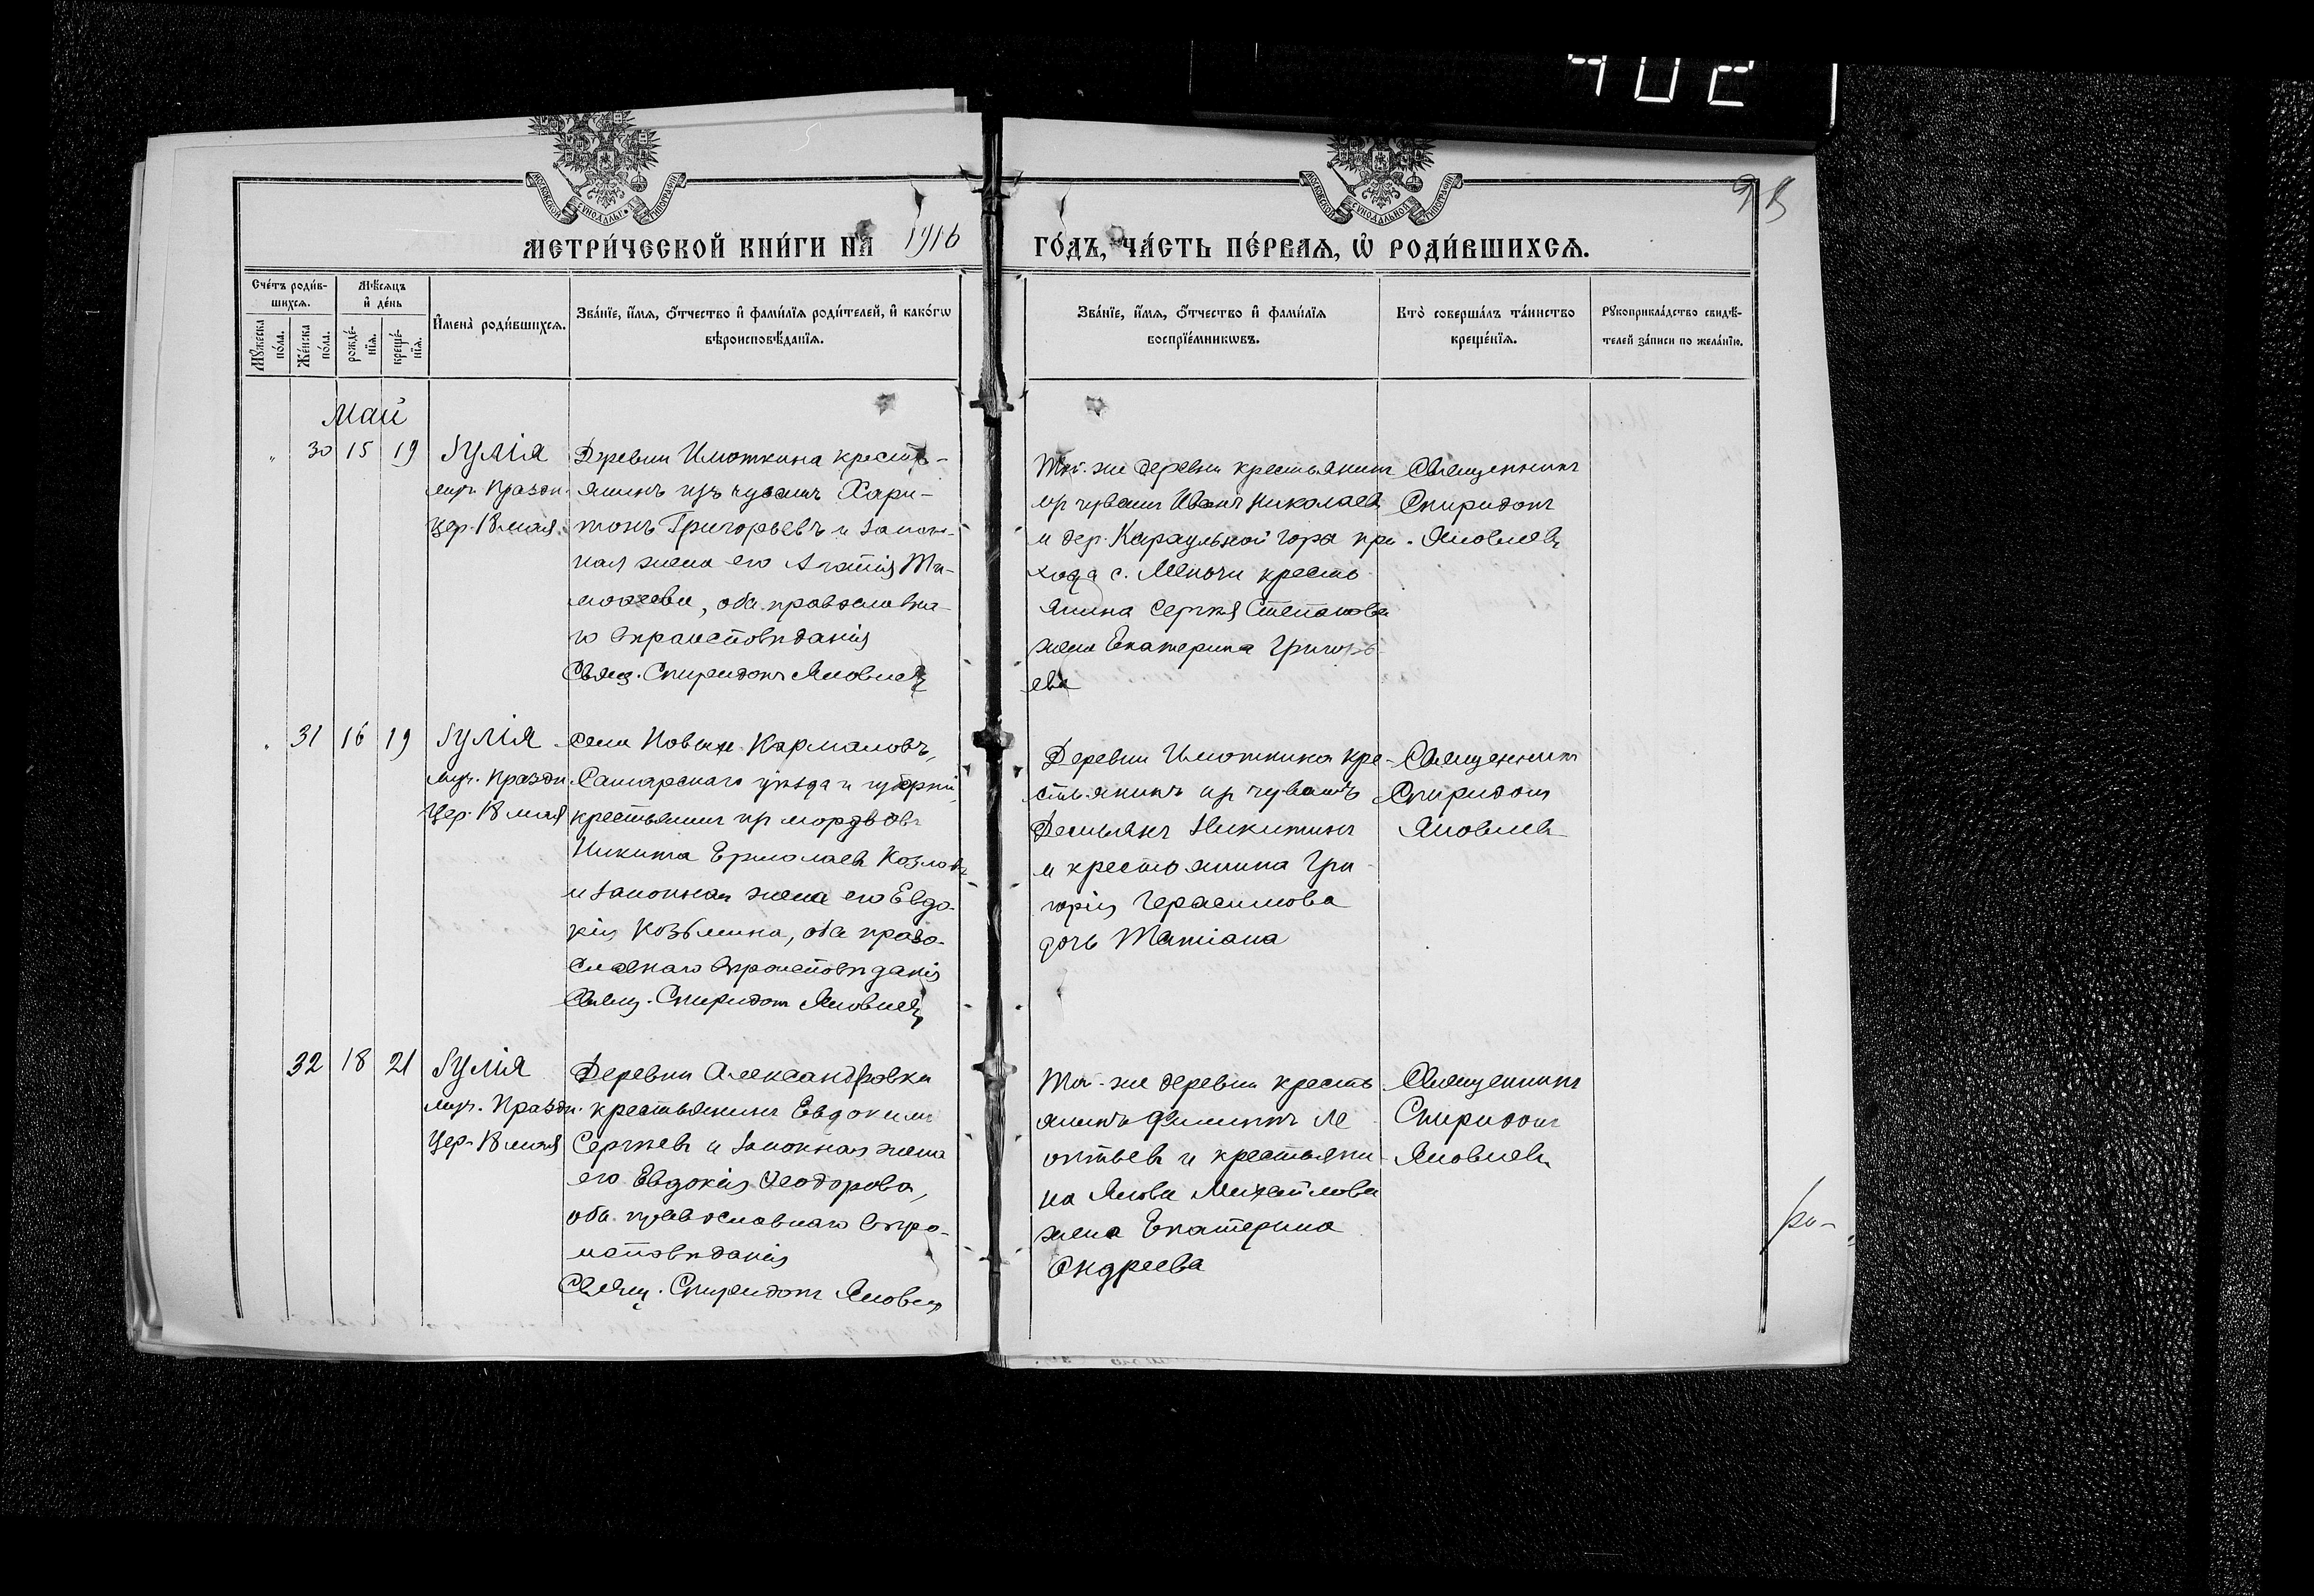 402
98
МЕТРИ́ЧЕСКОЙ КНИ́ГИ НА 1916
ГО́ДЪ, ЧА́СТЬ ПЕ́РВАѦ, Ѡ҆ РОДИ́ВШИХСѦ.
Сче́тъ роди́в-
шихсѧ.
Мꙋ́жеска по́ла.
Же́нска по́ла.
Мѣ́сѧцъ
и҆ де́нь
рожде́-
нїѧ.
креще́-
нїѧ.
И҆мена̀ роди́вшихсѧ.
Зва́нїе, и҆́мѧ, ѻ҆́тчество и҆ фами́лїѧ роди́телей, и҆ како́гѡ
вѣроисповѣ́данїѧ.
Зва́нїе, и҆́мѧ, ѻ҆́тчество и҆ фами́лїѧ
воспрїе́мникѡвъ.
Кто̀ соверша́лъ та́инство
креще́нїѧ.
Рꙋкоприкла́дство свидѣ́-
телей за́писи по жела́нїю.
Май
30 15 19 Іулія
муч. Праздн.
Цер. 18 мая
Деревни Ишоткина кресть-
янинъ изъ чувашъ Хари-
тонъ Григорьевъ и закон-
ная жена его Агатія Ти-
мофеева, оба православна-
го вѣроисповѣданія
Свящ. Спиридонъ Яковлевъ
Той-же деревни крестьянинъ
из чувашъ Иванъ Николаевъ
и дер. Караульной горы при-
хода с. Меньчи кресть
янина Сергѣя Степанова
жена Екатерина Григорь-
ева
Священникъ
Спиридонъ
Яковлевъ
31 16 19 Іулія
муч. Праздн.
Цер. 18 мая
села Новыхъ Кармаловъ,
Самарскаго уѣзда и губерніи,
крестьянинъ из мордвовъ
Никита Ермолаевъ Козловъ
и законная жена его Евдо-
кія Козьмина, оба право-
славнаго вѣроисповѣданія
Свящ. Спиридонъ Яковлевъ
Деревни Ишоткина кре-
стьянинъ из чувашъ
Демьянъ Никитинъ
и крестьянина Гри-
горія Герасимова
дочь Татіана
Священникъ
Спиридонъ
Яковлевъ
32 18 21 Іулія
муч. Праздн.
Цер. 18 мая
Деревни Александровки
крестьянинъ Евдокимъ
Сергѣевъ и законная жена
его Евдокія Ѳеодорова,
оба православнаго вѣро-
исповѣданія
Свящ. Спиридонъ Яковлевъ
Той-же деревни кресть
янинъ Филиппъ Ле
онтьевъ и крестьяни-
на Якова Михайлова
жена Екатерина
Андреева
Священникъ
Спиридонъ
Яковлевъ